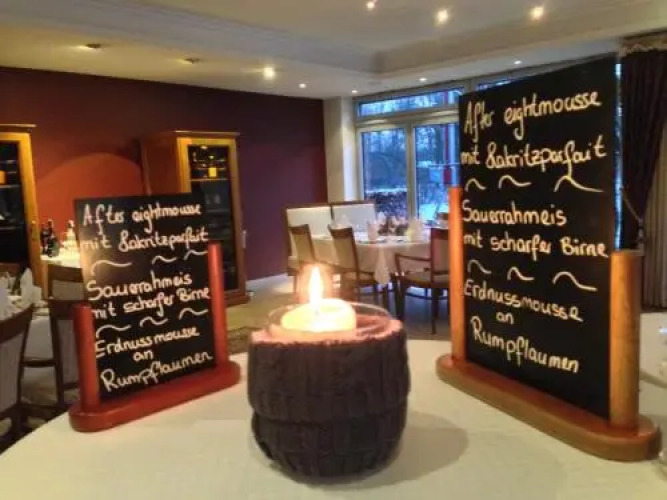 After eightmousse
mit Lakritzparfait
Sauerrahmeis
mit scharfer Birne
Erdnussmousse
an
Rumpflaumen
After eightmousse
mit Lakritzparfait
Sauerrahmeis
mit scharfer Birne
Erdnussmousse
an
Rumpflaumen